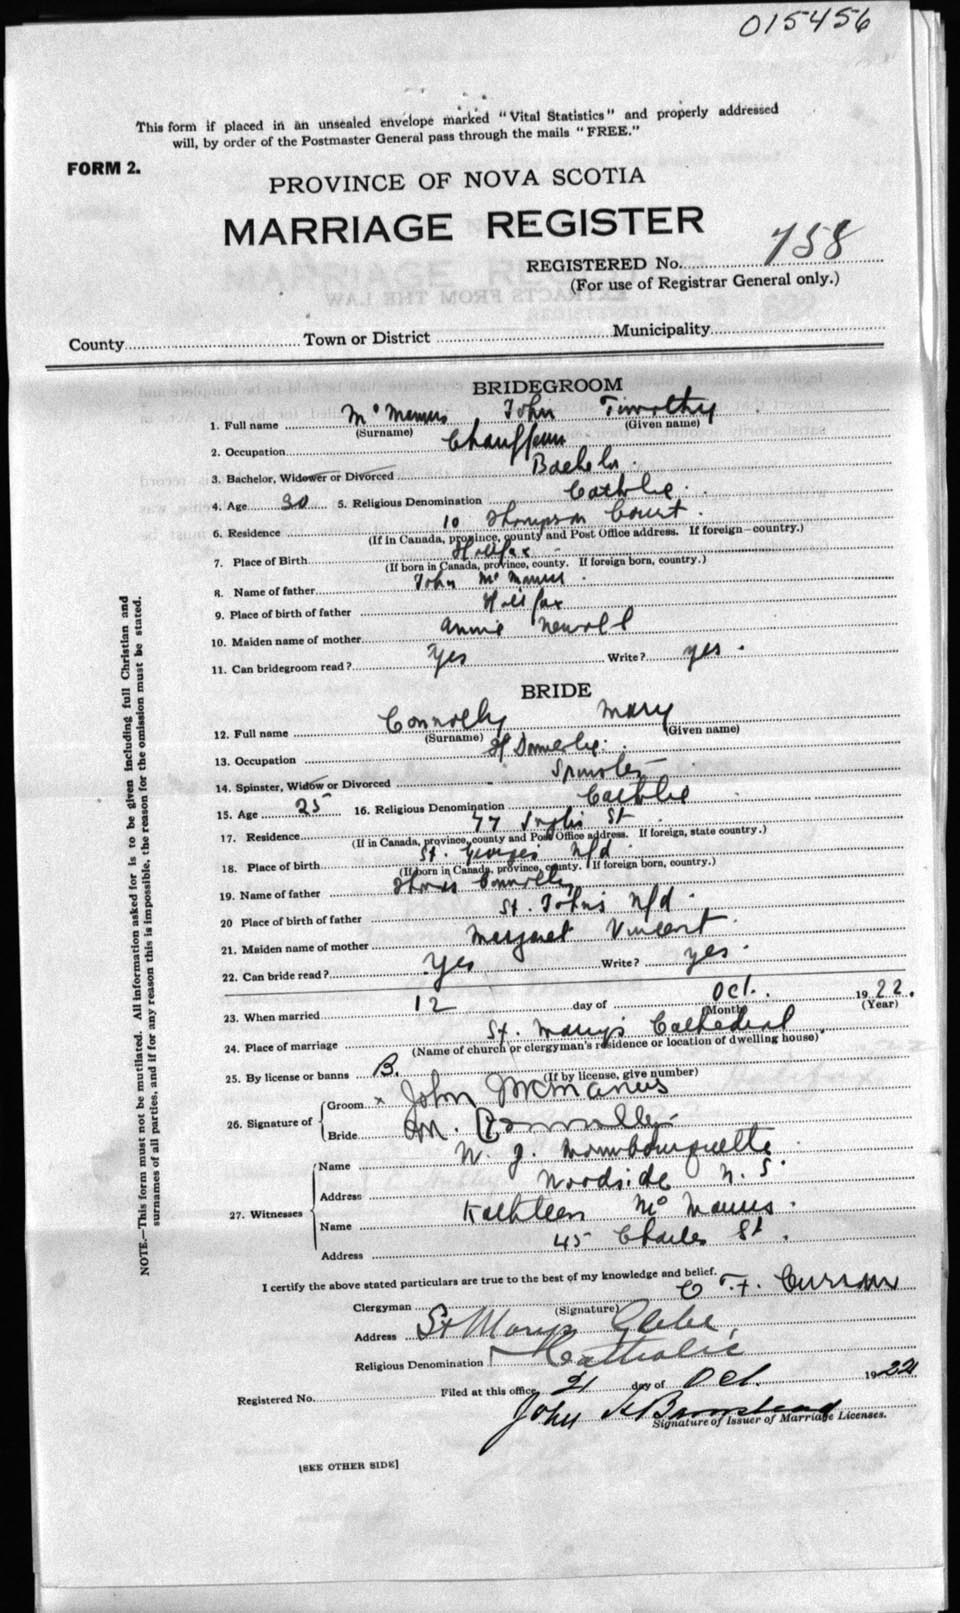 015456
This form if placed in an unsealed envelope marked "Vital Statistics" and properly addressed
will, by order of the Postmaster General pass through the mails "FREE."
FORM 2.
PROVINCE OF NOVA SCOTIA
MARRIAGE REGISTER
REGISTERED No. 758
(For use of Registrar General only.)
County Town or District Municipality
BRIDEGROOM
1. Full name McManus John Timothy
(Surname) (Given name)
2. Occupation Chauffeur
3. Bachelor, Widower or Divorced Bachelor
4. Age 30 5. Religious Denomination Catholic
6. Residence 10 Thompson Court
(If in Canada, province, county and Post Office address. If foreign country.)
7. Place of Birth Halifax
(If born in Canada, province, county. If foreign born, country.)
8. Name of father John McManus
9. Place of birth of father Halifax
10. Maiden name of mother Annie Newell
11. Can bridegroom read? Yes Write? yes.
BRIDE
12. Full name Connolly Mary
(Surname) (Given name)
13. Occupation Domestic
14. Spinster, Widow or Divorced Spinster
15. Age 25 16. Religious Denomination Catholic
17. Residence 77 Inglis St
(If in Canada, province, county and Post Office address. If foreign, state country.)
18. Place of birth St. Georges Nfd
(If born in Canada, province, county. If foreign born, country.)
19. Name of father Thomas Connolly
20 Place of birth of father St. John's Nfd.
21. Maiden name of mother Margaret Vincent
22. Can bride read? Yes Write? yes.
23. When married 12 day of Oct. 1922.
(Month) (Year)
24. Place of marriage St. Mary's Cathedral
(Name of church or clergyman's residence or location of dwelling house)
25. By license or banns B.
(If by license, give number)
26. Signature of Groom x John McManus
Bride M. Connolly
27. Witnesses Name W. J. Mombourquette
Address Woodside N. S.
Name Kathleen McManus.
Address 45 Charles St.
I certify the above stated particulars are true to the best of my knowledge and belief.
Clergyman C. F. Curran
(Signature)
Address St Marys Glebe,
Religious Denomination Catholic
Registered No. Filed at this office 21 day of Oct. 1922
John H Barnstead
Signature of Issuer of Marriage Licenses.
[SEE OTHER SIDE]
NOTE.—This form must not be mutilated. All information asked for is to be given including full Christian and
surnames of all parties, and if for any reason this is impossible, the reason for the omission must be stated.